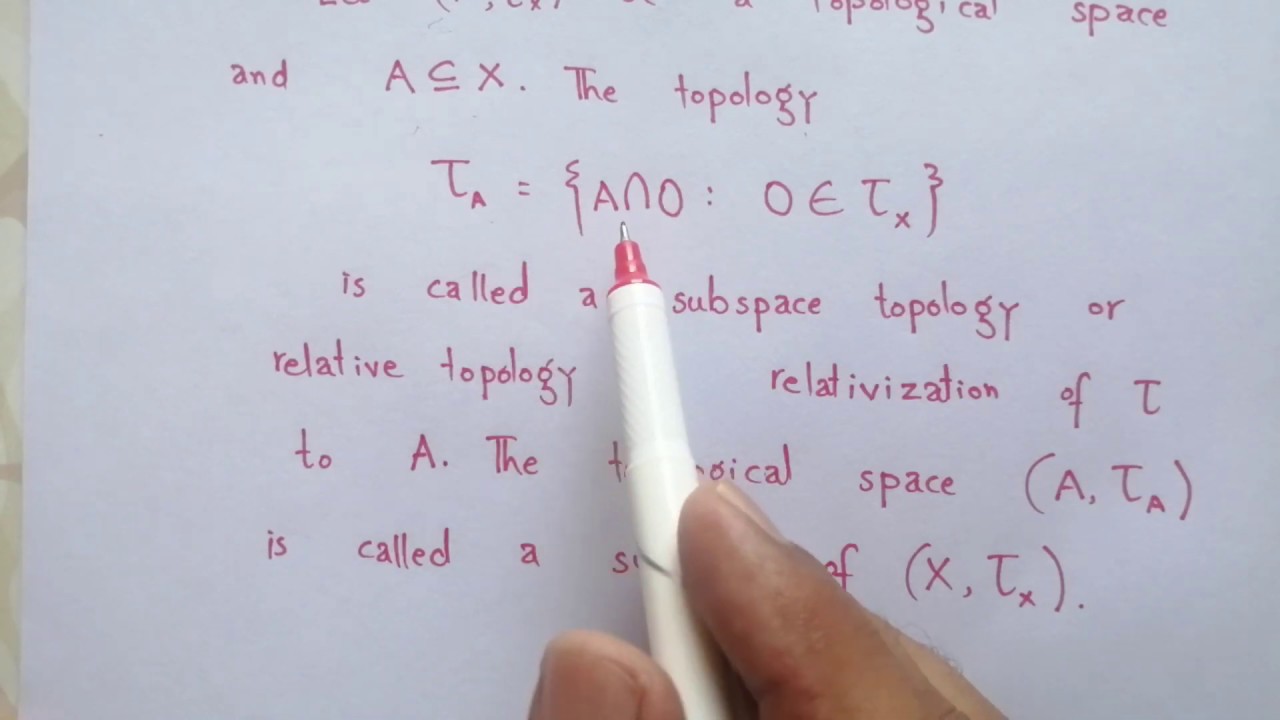 topological space
and A ⊆ X. The topology
τ_A = {A∩O : O ∈ τ_x}
is called a subspace topology or
relative topology relativization of τ
to A. The space (A, τ_A)
is called a of (X, τ_x).